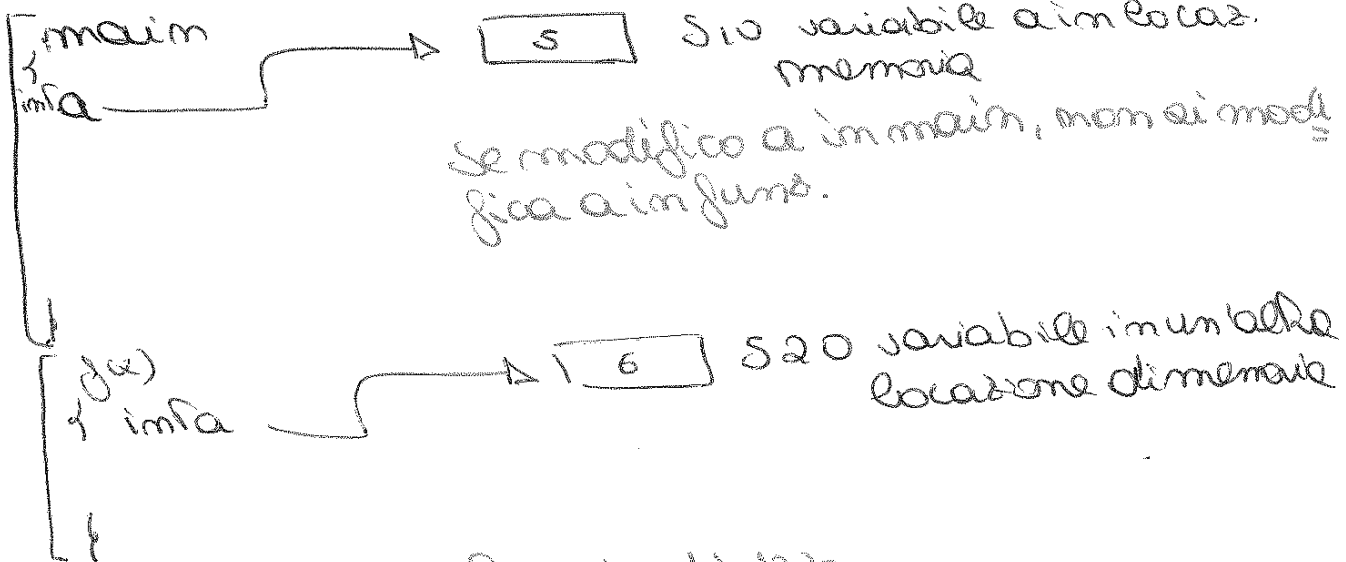 main
{
int a
5
510 variabile a in locaz.
memoria
se modifico a in main, non si modi
fica a in funz.
}
f(x)
{ int a
6
520 variabile in un'altra
locazione di memoria
}